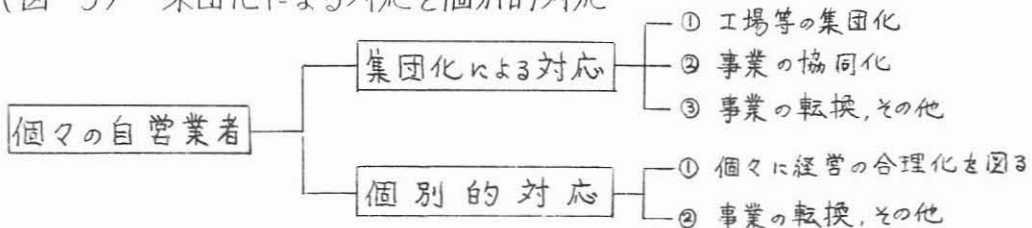 集団化による対応と個別的対応
個々の自営業者
集団化による対応
① 工場等の集団化
② 事業の協同化
③ 事業の転換,その他
個別的対応
① 個々に経営の合理化を図る
② 事業の転換,その他